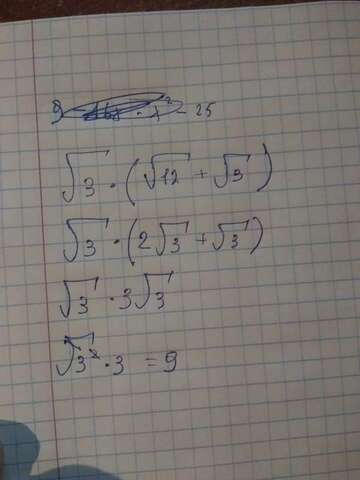 9) x² - 25
√3 · (√12 + √3)
√3 · (2√3 + √3)
√3 · 3√3
√3² · 3 = 9